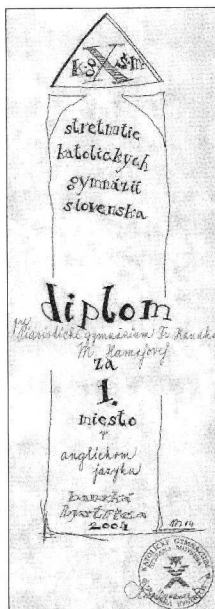 k·g X š·m
stretnutie
katolíckych
gymnázií
slovenska
diplom
pre
Piaristické gymnázium Fr. Hanáka
M. Hamajovej
za
1.
miesto
v
anglickom
jazyku
banská
bystrica
2004